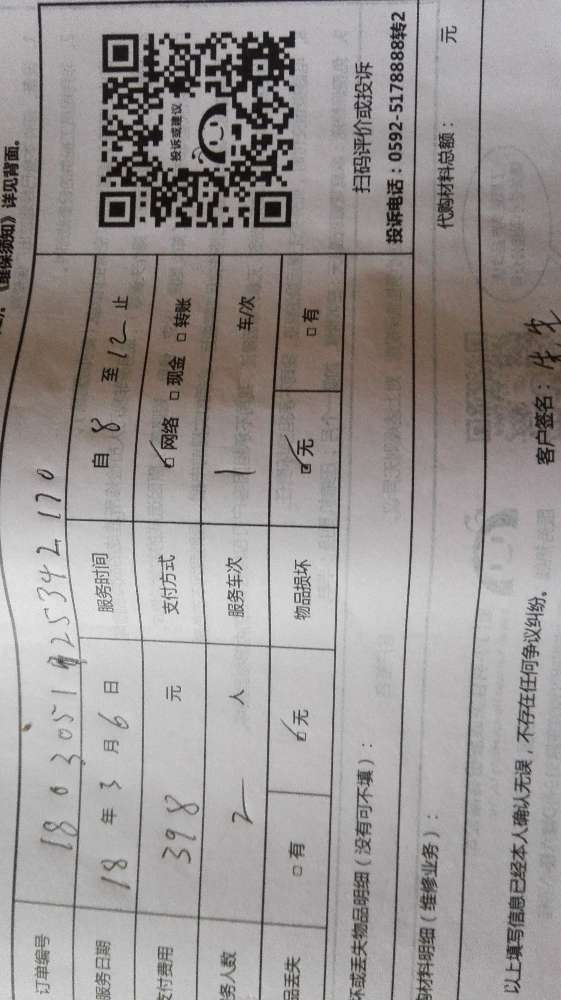 《维保须知》详见背面。
订单编号
服务日期 18 年 3 月 6 日 服务时间 自 8 至 12 止
支付费用 398 元 支付方式 ☑ 网络 □ 现金 □ 转账
务人数 2 人 服务车次 1 车/次
品丢失 □ 有 ☑ 无 物品损坏 ☑ 无 □ 有
投诉或建议
扫码评价或投诉
投诉电话：0592-5178888转2
坏或丢失物品明细（没有可不填）：
材料明细（维修业务）： 代购材料总额： 元
以上填写信息已经本人确认无误，不存在任何争议纠纷。 客户签名：